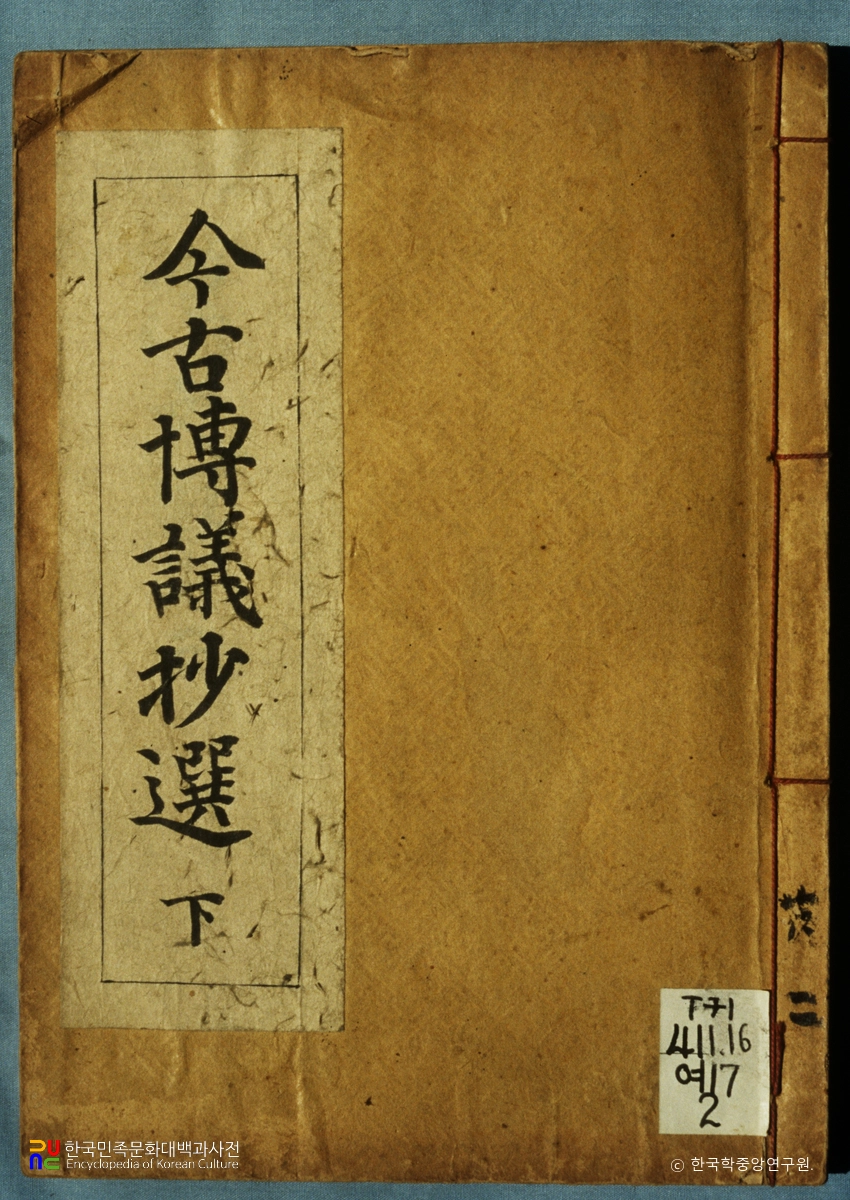 今古博議抄選 下
共二
T구
411.16
예17
2
한국민족문화대백과사전
Encyclopedia of Korean Culture
© 한국학중앙연구원.